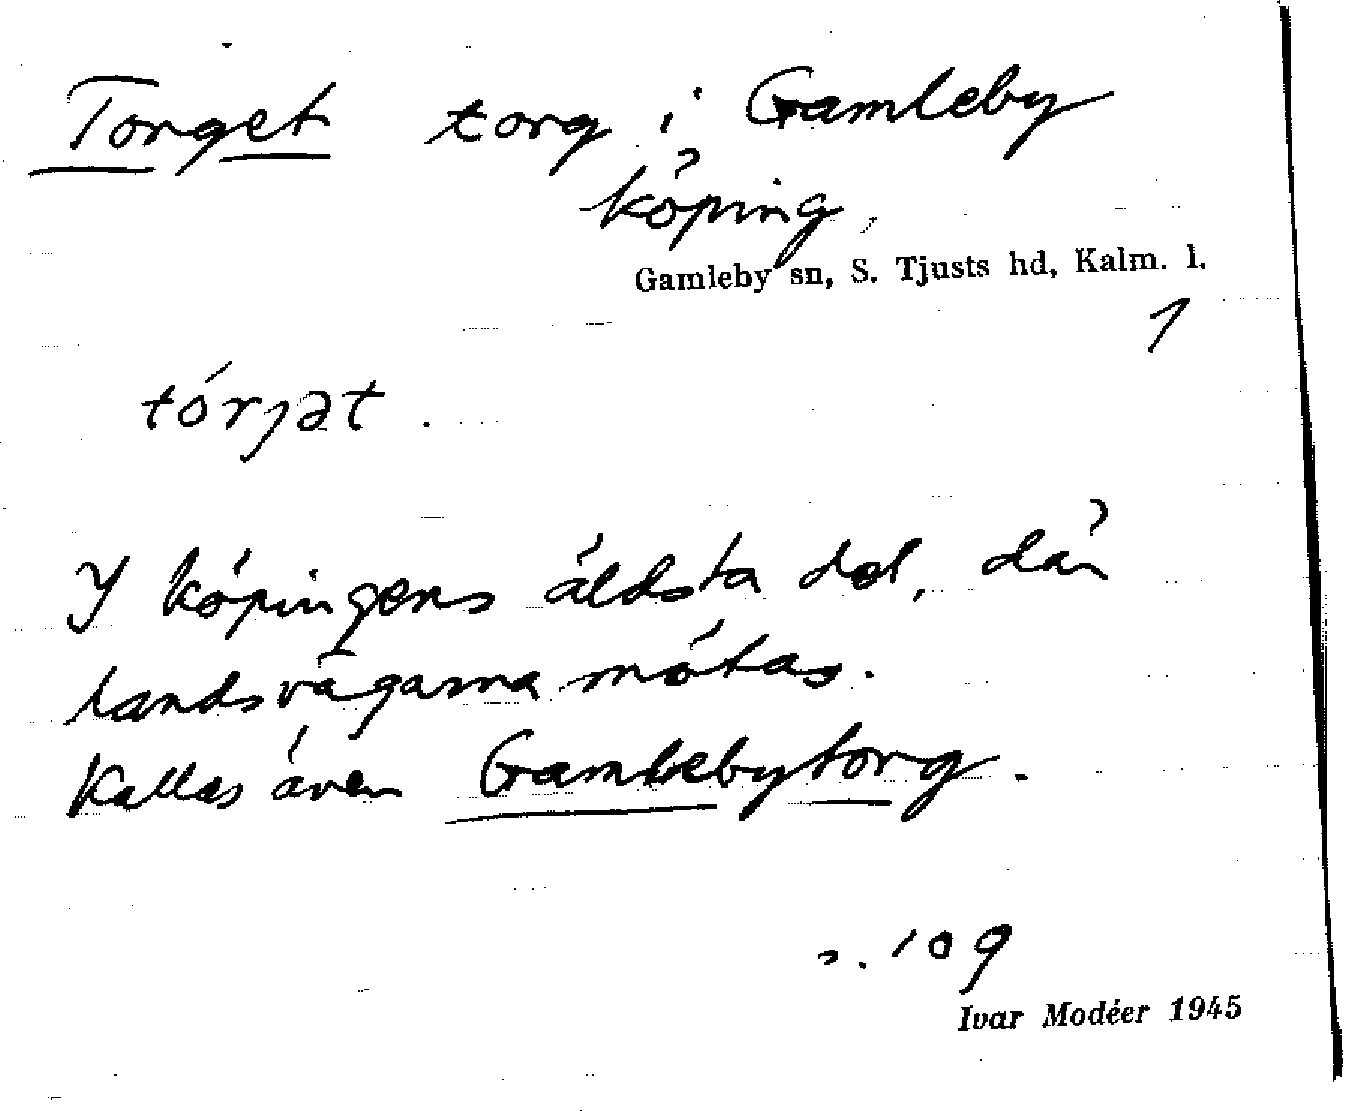 Torget torg i Gamleby
köping.
Gamleby sn, S. Tjusts hd, Kalm. l.
1
tórjət.
I köpingens äldsta del, där
landsvägarna mötas.
Kallas även Gamlebytorg.
s. 109
Ivar Modéer 1945